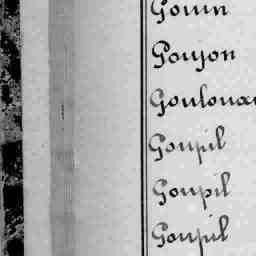 Gouin
Goujon
Goulou
Goupil
Goupil
Goupil